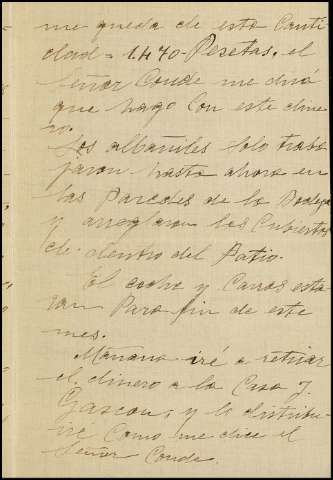 me queda de esta Canti
dad = 1.470 - Pesetas. el
Señor Conde me dirá
que hago Con este dine
ro.
Los albañiles solo traba
jaron hasta ahora en
las Paredes de la Bodega
y arreglaron las Cubiertas
de dentro del Patio.
El coche y Carros esta
ran Para fin de este
mes.
Mañana iré a retirar
el dinero a la Casa J.
Gascon, y lo distribu-
iré Como me dice el
Señor Conde.